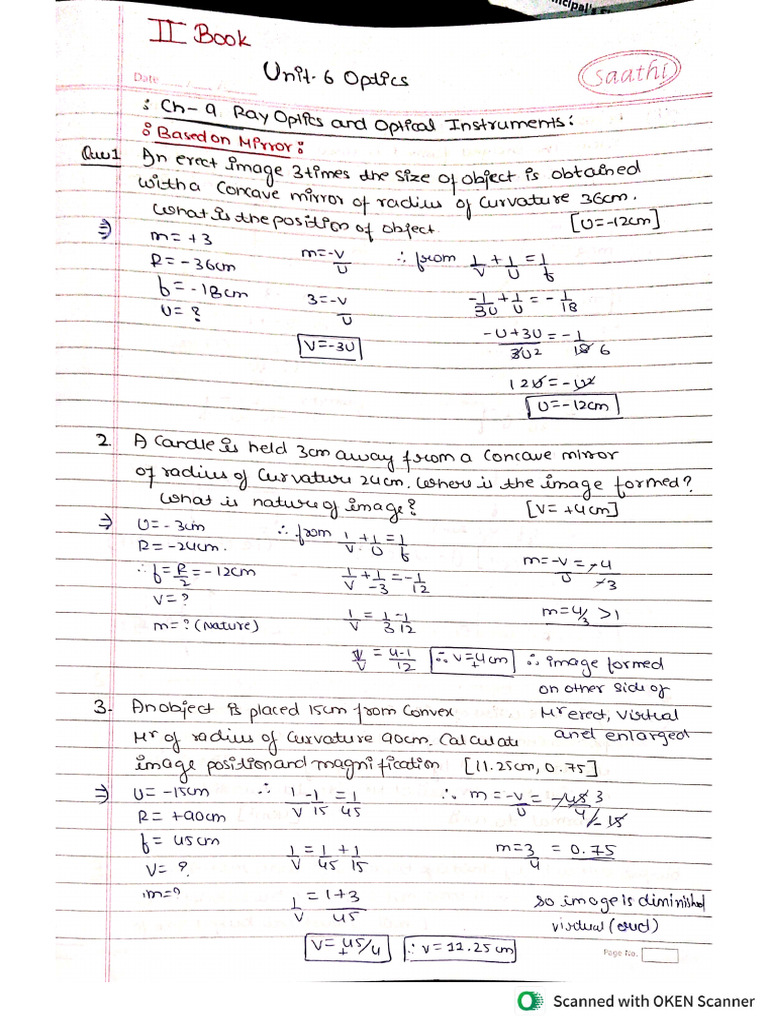 ncipal's S
II Book
Date ..... / ..... / .....
Unit-6 Optics
Saathi
: Ch-9 Ray Optics and Optical Instruments:
: Based on Mirror :
Que 1 An erect image 3 times the size of object is obtained
with a Concave mirror of radius of Curvature 36cm.
What is the position of object. [U=-12cm]
⇒ m = +3
R = -36cm
f = -18cm
U = ?
m = -V/U
3 = -V/U
V = -3U
∴ from 1/V + 1/U = 1/f
-1/3U + 1/U = -1/18
-U+3U/3U2 = -1/18 6
12U = -U2
U = -12cm
2. A Candle is held 3cm away from a Concave mirror
of radius of Curvature 24cm. Where is the image formed?
What is nature of image? [V= +4cm]
⇒ U = -3cm
R = -24cm.
∴ f = R/2 = -12cm
V = ?
m = ? (Nature)
∴ from 1/V + 1/U = 1/f
1/V + 1/-3 = -1/12
1/V = 1/3 - 1/12
1/V = 4-1/12
∴ V = +4cm
m = -V/U = -4/-3
m = 4/3 > 1
∴ image formed
on other side of
Mr erect, virtual
and enlarged
3. An object is placed 15cm from Convex
Mr of radius of Curvature 90cm. Calculate
image position and magnification [11.25cm, 0.75]
⇒ U = -15cm
R = +90cm
f = 45cm
V = ?
m = ?
∴ 1/V - 1/15 = 1/45
1/V = 1/45 + 1/15
1/V = 1+3/45
V = +45/4
∴ V = 11.25cm
∴ m = -V/U = -45 3/4/-15
m = 3/4 = 0.75
so image is diminished
virtual
Page No.
Scanned with OKEN Scanner